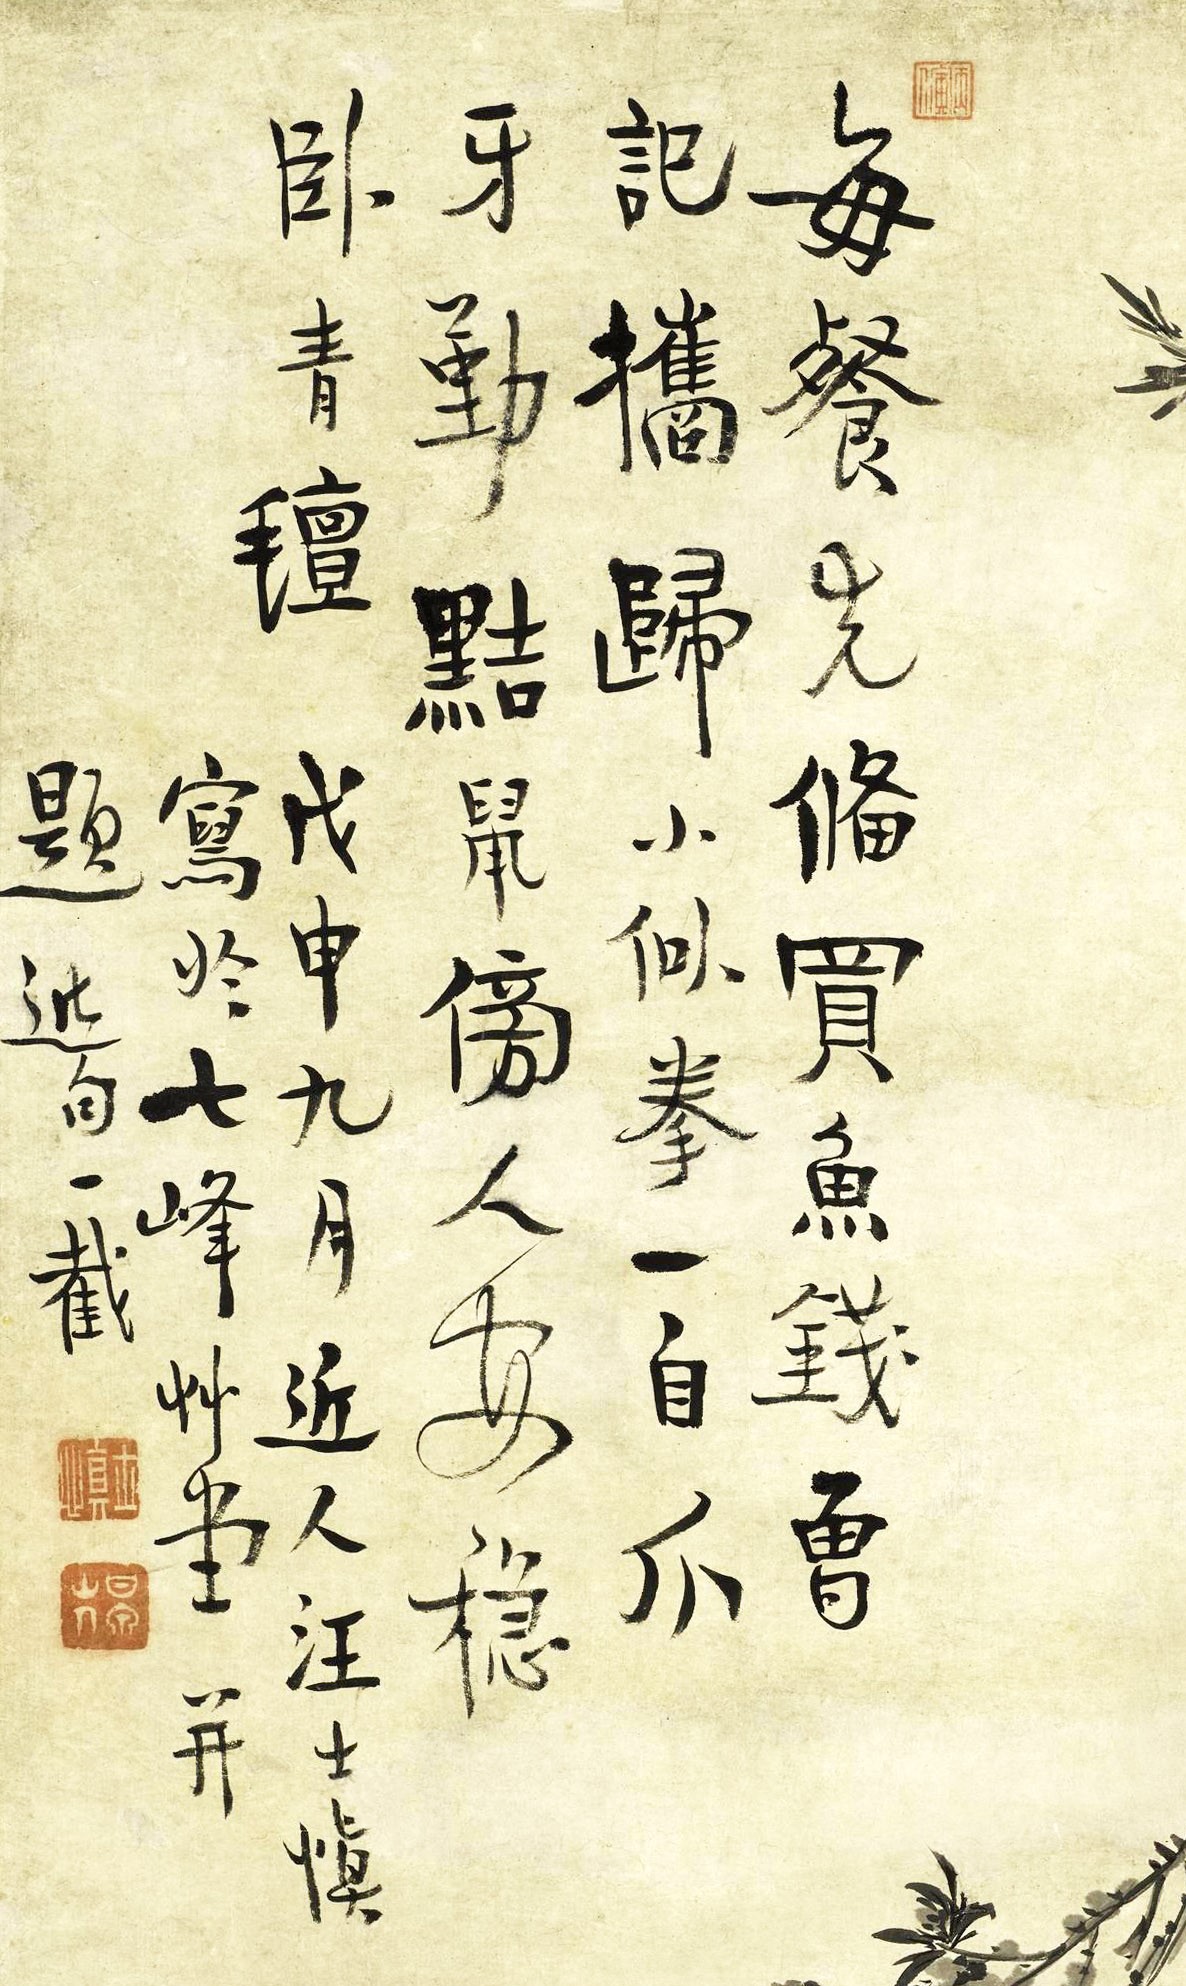 每餐先俻買魚錢曾
記攜歸小佀拳一自爪
牙勤黠鼠傍人安穩
臥青氊
戊申九月近人汪士慎
寫於七峰艸堂并
題逃句一截